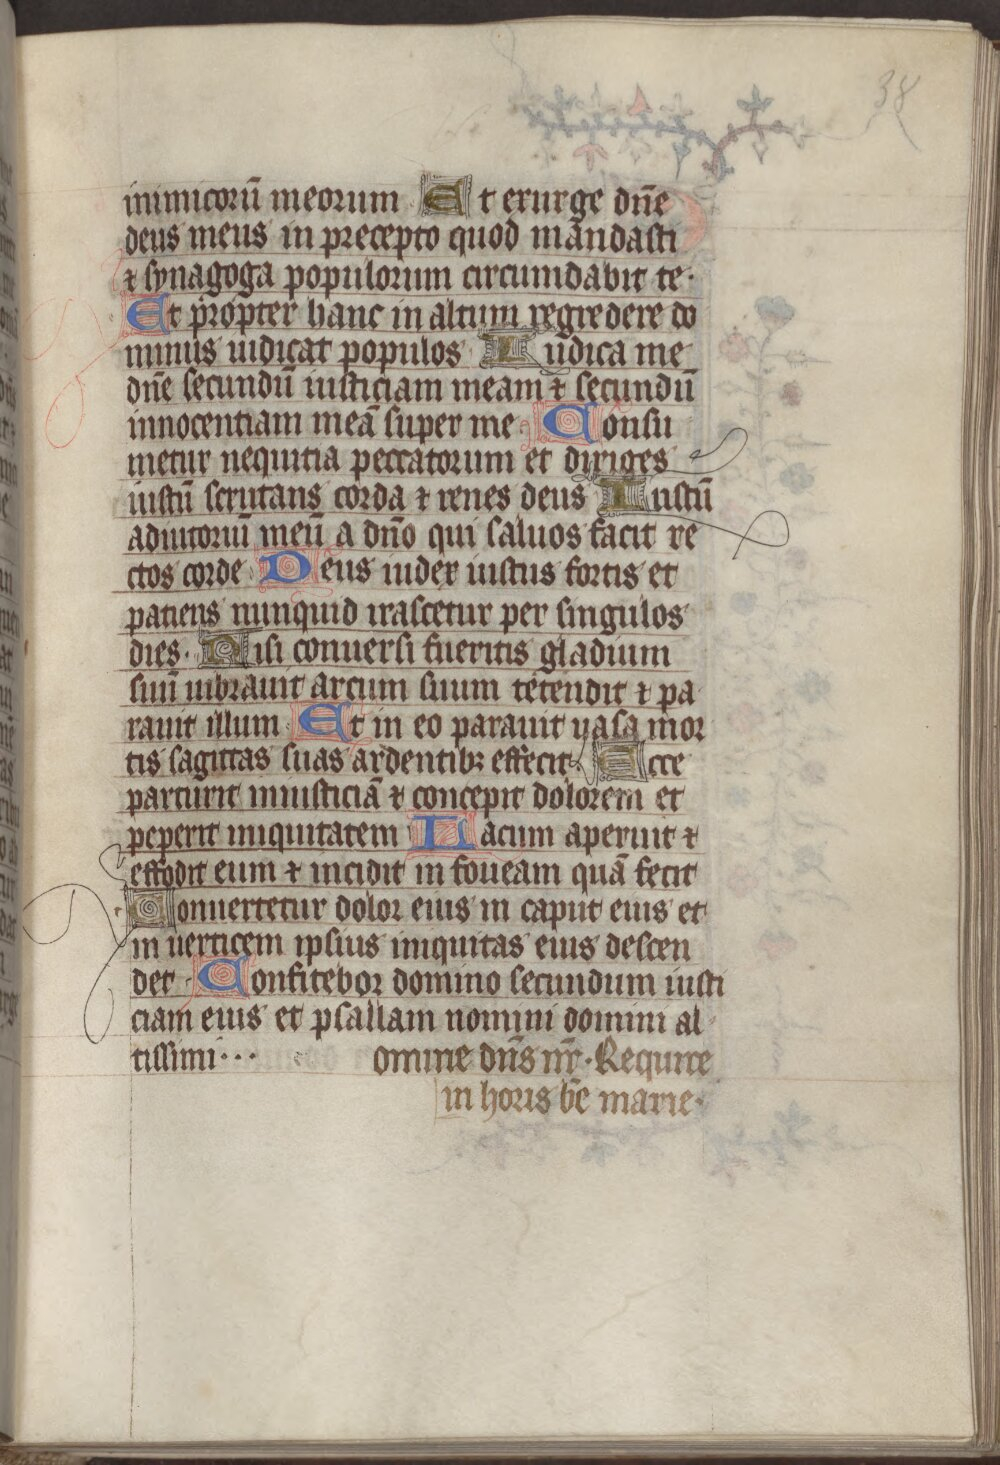 38
inimicorū meorum Et exurge dn̄e
deus meus in precepto quod mandasti
⁊ synagoga populorum circumdabit te·
Et propter hanc in altum regredere do
minus iudicat populos Iudica me
dn̄e secundū iusticiam meam ⁊ secundū
innocentiam meā super me Consu
metur nequitia peccatorum et diriges
iustū scrutans corda ⁊ renes deus Iustū
adiutoriū meū a dn̄o qui saluos facit re
ctos corde Deus iudex iustus fortis et
patiens nunquid irascetur per singulos
dies· Nisi conuersi fueritis gladium
suū uibrauit arcum suum tetendit ⁊ pa
rauit illum Et in eo parauit uasa mor
tis sagittas suas ardentibꝫ effecit Ecce
parturit iniusticiā ⁊ concepit dolorem et
peperit iniquitatem Lacum aperuit ⁊
effodit eum ⁊ incidit in foueam quā fecit
Conuertetur dolor eius in caput eius et
in uerticem ipsius iniquitas eius descen
det Confitebor domino secundum iusti
ciam eius et psallam nomini domini al
tissimi··· omine dn̄s nr̄· Require
in horis be᷎ marie·